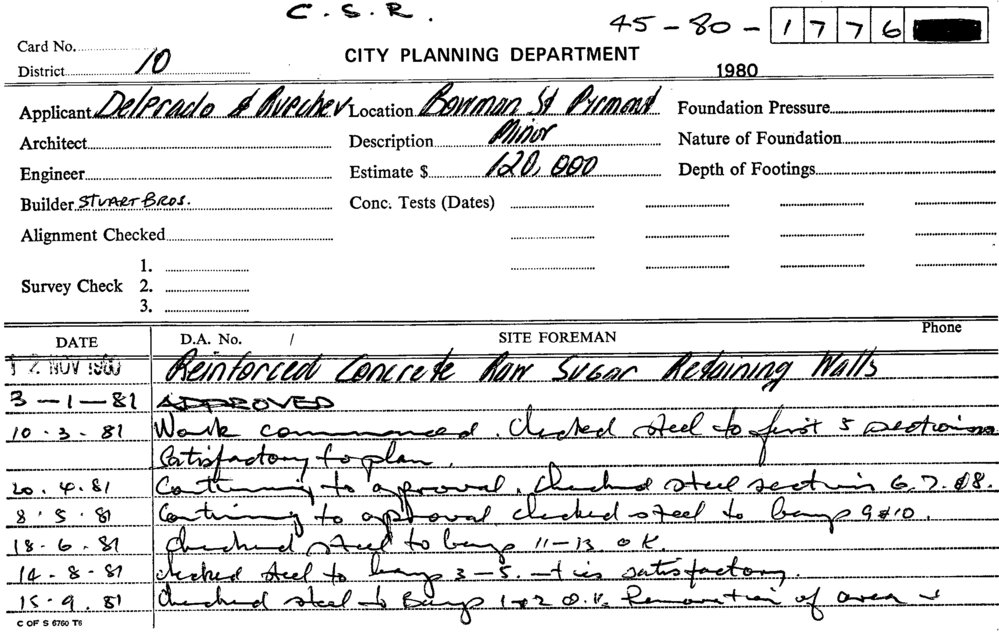 C.S.R.
45-80-1776
Card No.
District 10
CITY PLANNING DEPARTMENT
1980
Applicant Delprado & Location Bowman St Pyrmont Foundation Pressure
Architect Description Minor Nature of Foundation
Engineer Estimate $ 120,000 Depth of Footings
Builder STUART BROS. Conc. Tests (Dates)
Alignment Checked
1.
Survey Check 2.
3.
DATE D.A. No. / SITE FOREMAN Phone
12 NOV 1980 Reinforced Concrete Raw Sugar Retaining Walls
3-1-81 APPROVED
10.3.81 Work commenced. Checked steel to first 5 sections
Satisfactory to plan.
20.4.81 Continuing to approval. Checked steel sections 6.7.&8.
8.5.81 Continuing to approval checked steel to bays 9&10.
18-6-81 Checked steel to bays 11-13 O.K.
14-8-81 checked steel to bays 3-5. ties satisfactory.
15-9.81 Checked steel to Bays 1&2 O.K. of area
C OF S 6760 T6